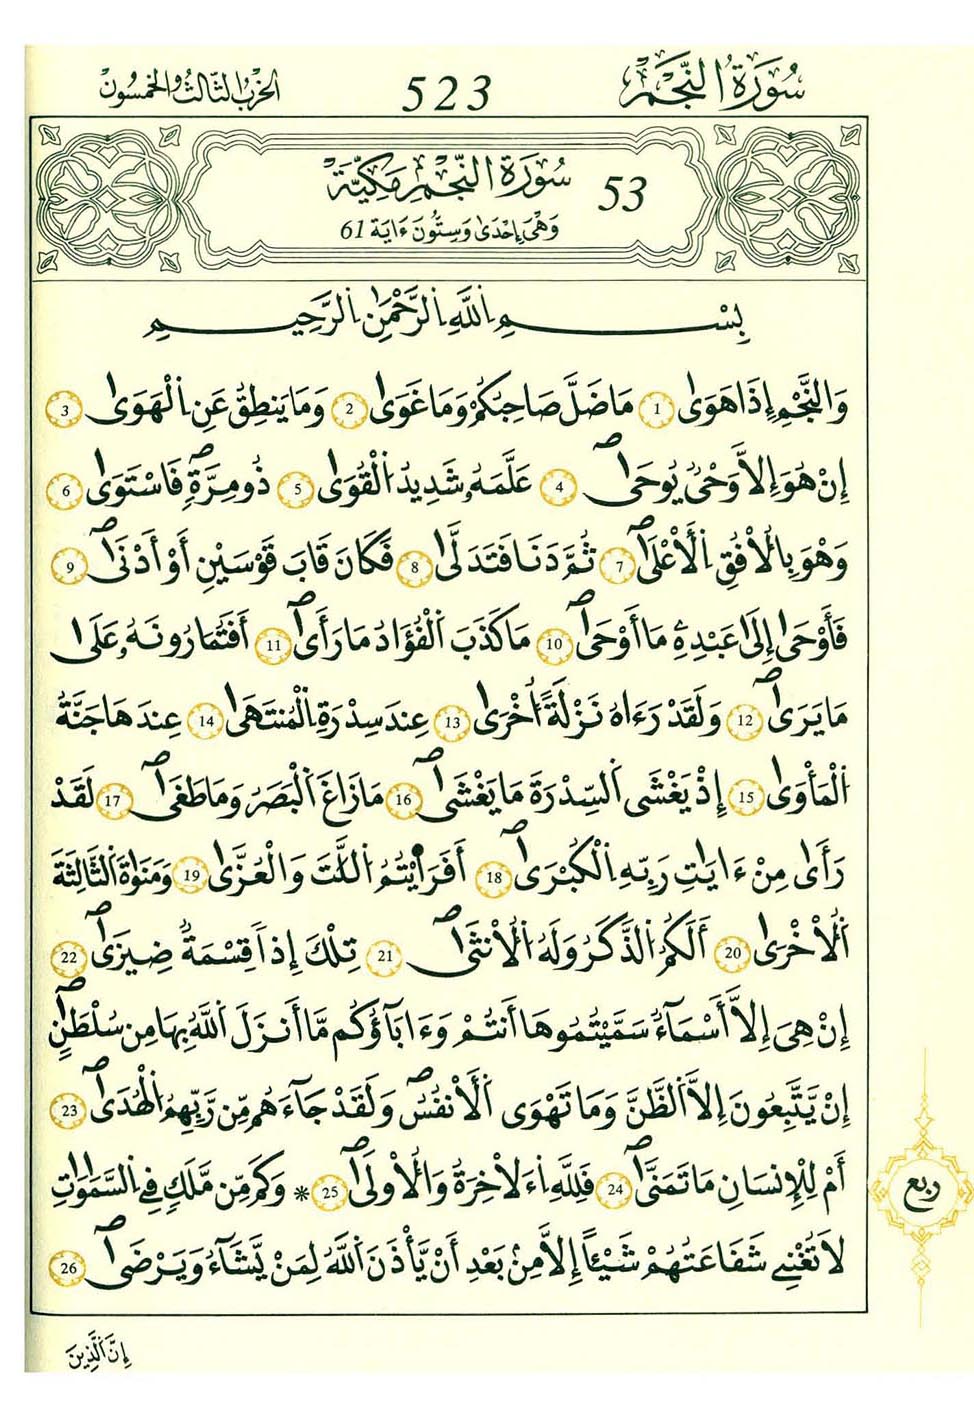 سُورَةُ النَّجْمِ 523 الحِزْبُ الثَّالِثُ وَالخَمْسُونَ
53 سُورَةُ النَّجْمِ مَكِّيَّةٌ
وَهْيَ إِحْدَىٰ وَسِتُّونَ ءَايَة 61
بِسْمِ اِللَّهِ اِلرَّحْمَٰنِ اِلرَّحِيمِ
وَالنَّجْمِ إِذَا هَوَىٰ 1 مَا ضَلَّ صَاحِبُكُمْ وَمَا غَوَىٰ 2 وَمَا يَنطِقُ عَنِ اِلْهَوَىٰ 3
إِنْ هُوَ إِلَّا وَحْيٌ يُوحَىٰ 4 عَلَّمَهُۥ شَدِيدُ اُلْقُوَىٰ 5 ذُو مِرَّةٖ فَاسْتَوَىٰ 6
وَهْوَ بِالْأُفُقِ اِلْأَعْلَىٰ 7 ثُمَّ دَنَا فَتَدَلَّىٰ 8 فَكَانَ قَابَ قَوْسَيْنِ أَوْ أَدْنَىٰ 9
فَأَوْحَىٰ إِلَىٰ عَبْدِهِۦ مَا أَوْحَىٰ 10 مَا كَذَبَ اَلْفُؤَادُ مَا رَأَىٰ 11 أَفَتُمَارُونَهُۥ عَلَىٰ
مَا يَرَىٰ 12 وَلَقَدْ رَءَاهُ نَزْلَةً أُخْرَىٰ 13 عِندَ سِدْرَةِ اِلْمُنتَهَىٰ 14 عِندَهَا جَنَّةُ
اُلْمَأْوَىٰ 15 إِذْ يَغْشَى اَلسِّدْرَةَ مَا يَغْشَىٰ 16 مَا زَاغَ اَلْبَصَرُ وَمَا طَغَىٰ 17 لَقَدْ
رَأَىٰ مِنْ ءَايَٰتِ رَبِّهِ اِلْكُبْرَىٰ 18 أَفَرَأَيْتُمُ اُللَّٰتَ وَالْعُزَّىٰ 19 وَمَنَوٰةَ اَلثَّالِثَةَ
اَلْأُخْرَىٰ 20 أَلَكُمُ اُلذَّكَرُ وَلَهُ اُلْأُنثَىٰ 21 تِلْكَ إِذاً قِسْمَةٌ ضِيزَىٰ 22
إِنْ هِيَ إِلَّا أَسْمَآءٌ سَمَّيْتُمُوهَا أَنتُمْ وَءَابَآؤُكُم مَّا أَنزَلَ اَللَّهُ بِهَا مِن سُلْطَٰنٍ
إِنْ يَّتَّبِعُونَ إِلَّا اَلظَّنَّ وَمَا تَهْوَى اَلْأَنفُسُ وَلَقَدْ جَآءَهُم مِّن رَّبِّهِمُ اُلْهُدَىٰ 23
أَمْ لِلْإِنسَانِ مَا تَمَنَّىٰ 24 فَلِلَّهِ اِءَلَاخِرَةُ وَالْأُولَىٰ 25 * وَكَم مِّن مَّلَكٍ فِے اِلسَّمَٰوَٰتِ
لَا تُغْنِے شَفَاعَتُهُمْ شَيْـٔاً إِلَّا مِنۢ بَعْدِ أَنْ يَّأْذَنَ اَللَّهُ لِمَنْ يَّشَآءُ وَيَرْضَىٰ 26
ربع
إِنَّ اَلَّذِينَ